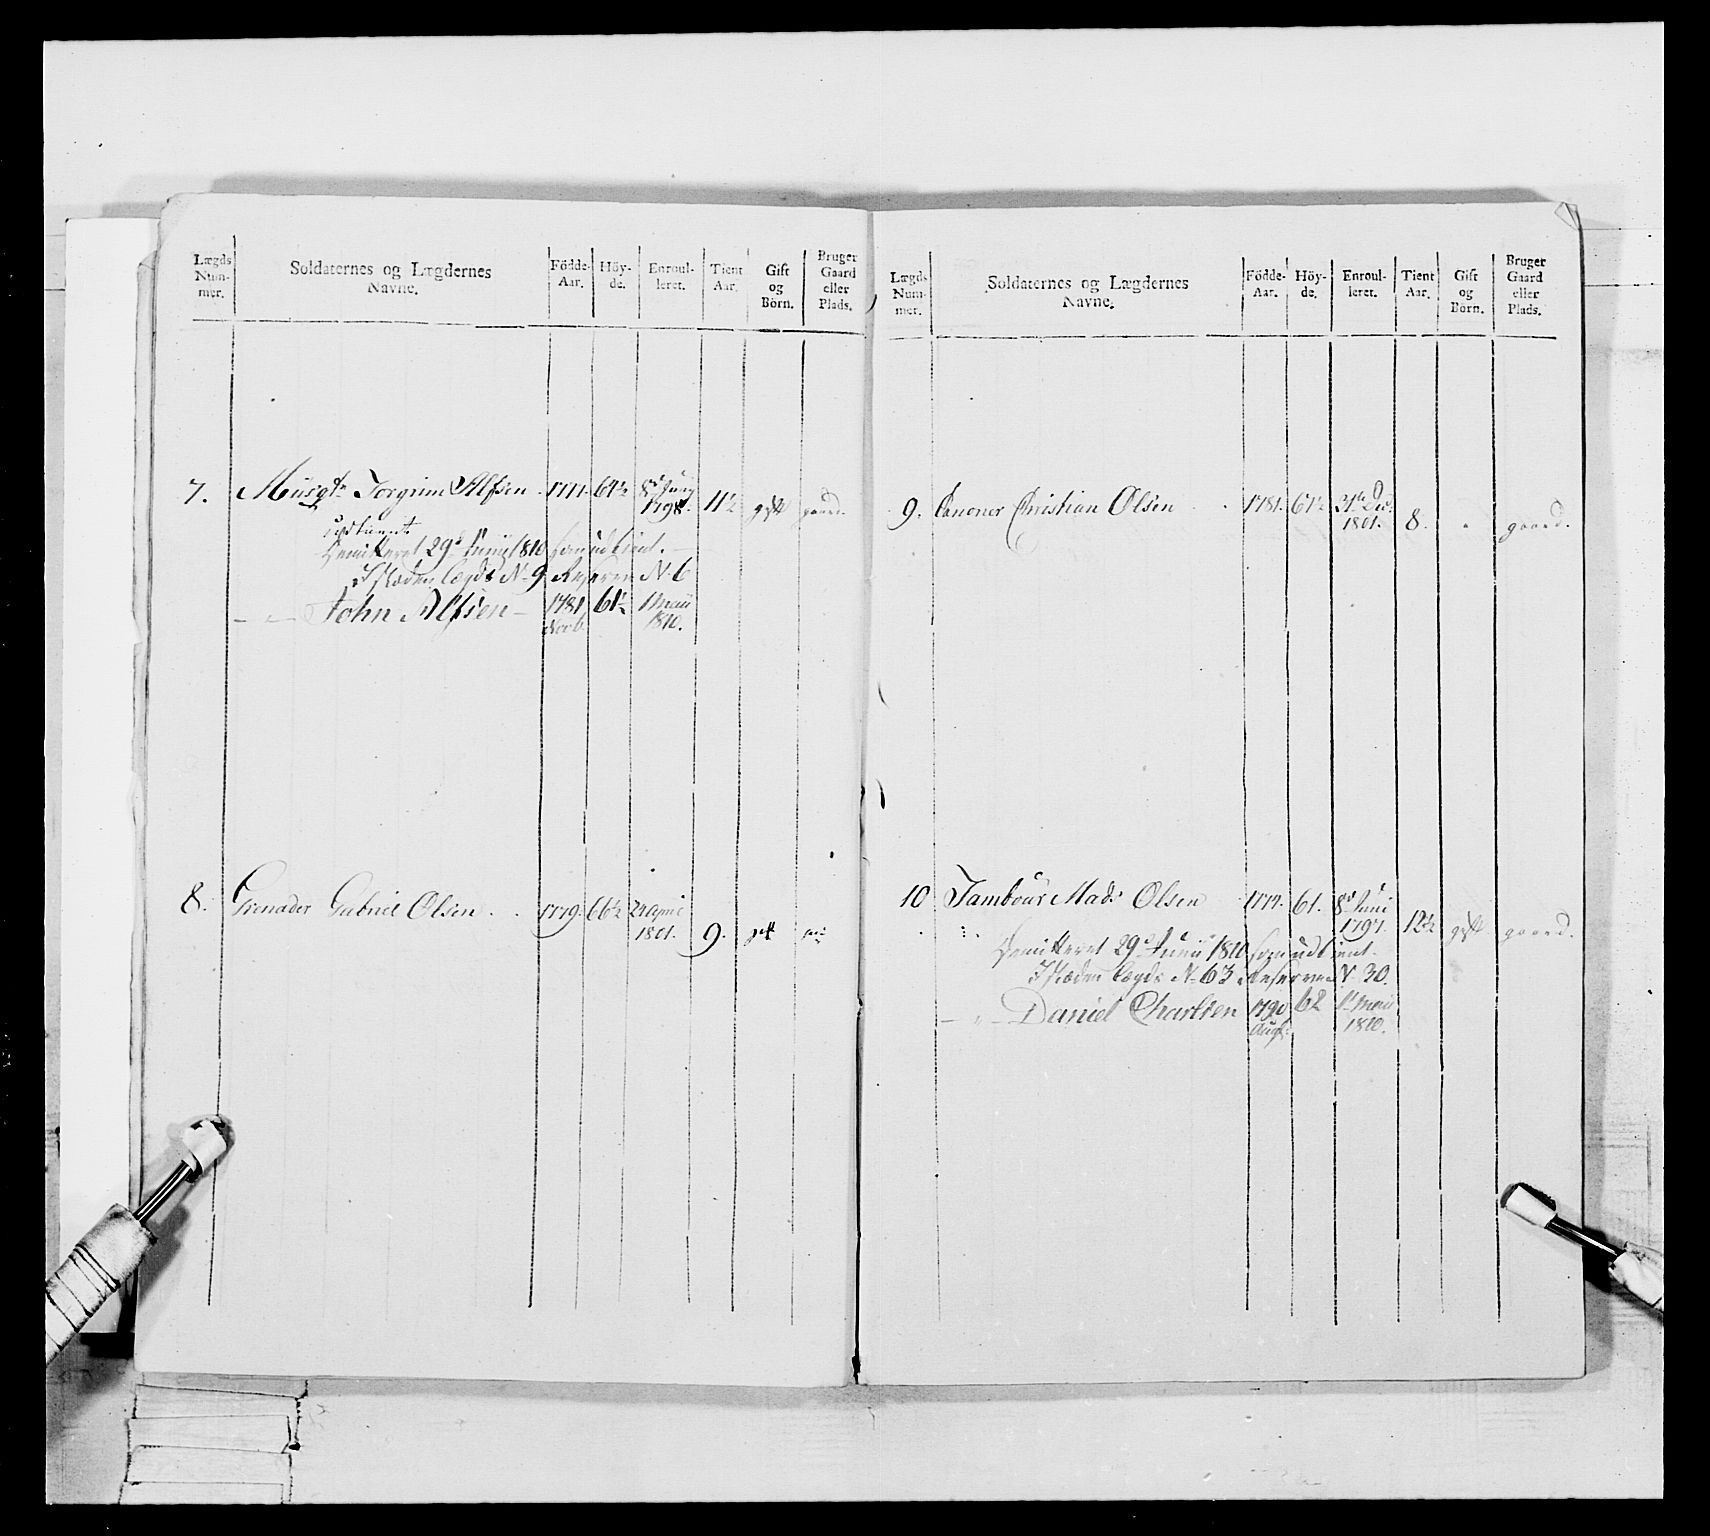 Lægds Num- mer.
Soldaternes og Lægdernes Navne.
Födde- Aar.
Höy- de.
Enroul- leret.
Tient Aar.
Gift og Börn.
Bruger Gaard eller Plads.
7. Musqtr Torgrim Alfsen 1771. 64½ 8de Juny 1798. 11½ gift gaard.
Demitteret 29d Junij 1810 som udtient.
I Steden Lægds No 9 Reserve No 6
- " - John Alfsen - 1781 Novb 61½ 1 Maii 1810.
8. Grenader Gabriel Olsen . . 1779. 66½ 24 April 1801. 9. gift
Lægds Num- mer.
Soldaternes og Lægdernes Navne.
Födde- Aar.
Höy- de.
Enroul- leret.
Tient Aar.
Gift og Börn.
Bruger Gaard eller Plads.
9. Canoner Christian Olsen . . 1781. 61½ 31te Dec. 1801. 8. " gaard.
10 Tambour Mads Olsen 1774. 61. 8de Juni 1797. 12½ gift gaard.
Demitteret 29d Junii 1810 som udtient.
I Steden Lægds No 63 Reserve No 30.
- " - Daniel Charlsen 1790 Augt. 62 1t Maii 1810.